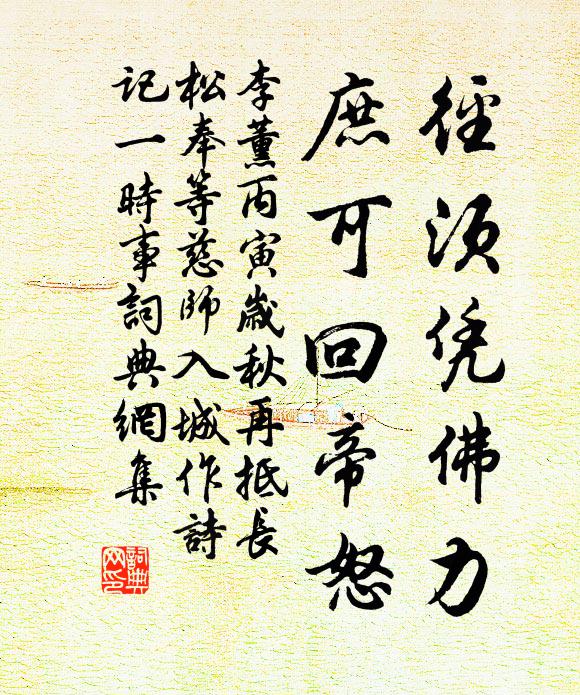 徑須凭佛力
庶可回帝怒
李薰丙寅歲秋再抵長
松奉等慈師入城作詩
記一時事詞典網集
詞典
网印